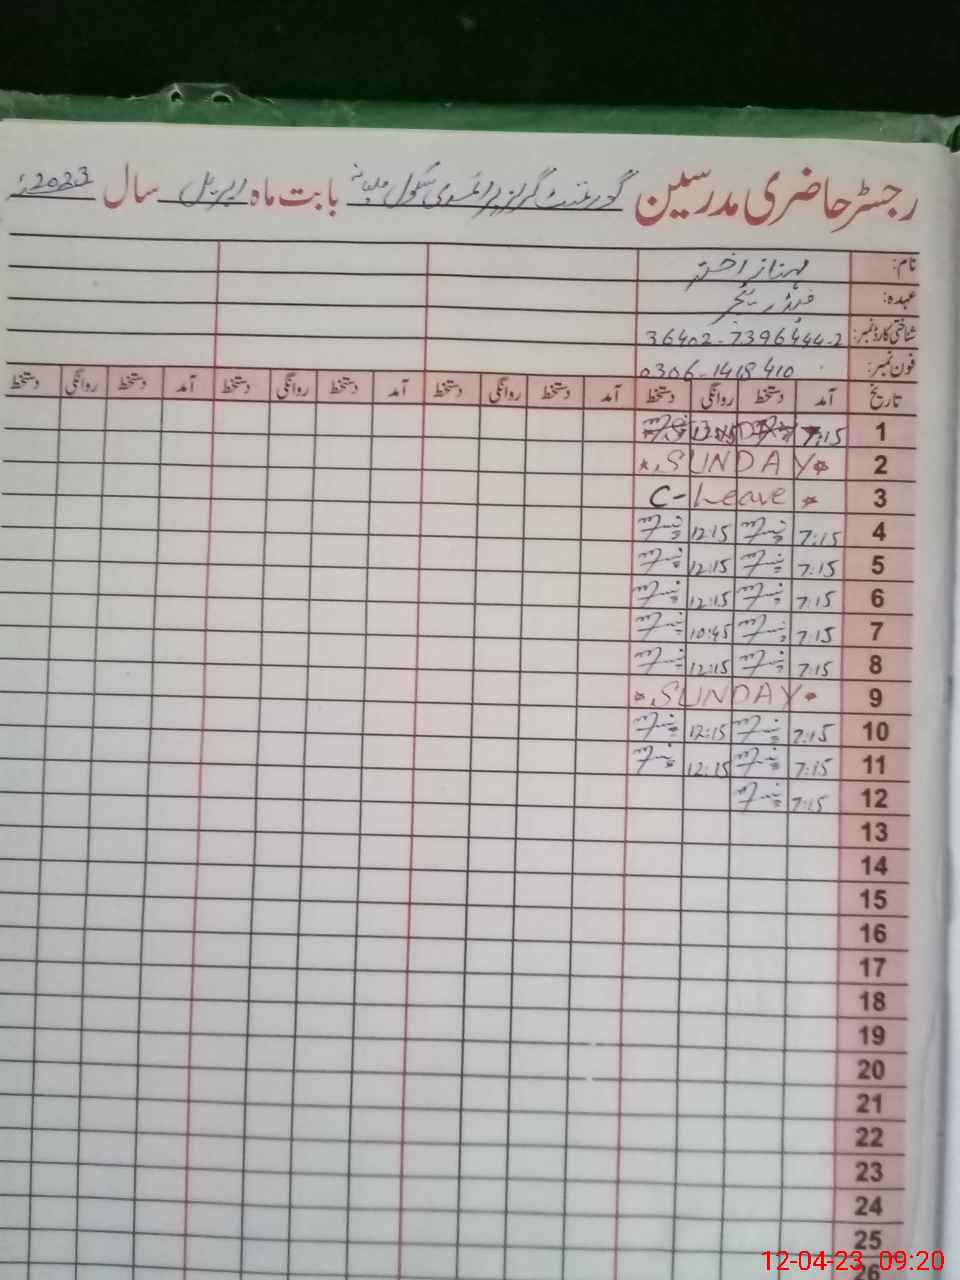 رجسٹر حاضری مدرسین گورنمنٹ گرلز پرائمری سکول بابت ماہ اپریل سال 2023ء
نام: مہناز اختر
عہدہ:
شناختی کارڈ نمبر: 36402-7396444-2
فون نمبر: 0306-1418410
تاریخ آمد دستخط روانگی دستخط آمد دستخط روانگی دستخط آمد دستخط روانگی دستخط آمد دستخط روانگی دستخط
1 7:15 12:15
2 SUNDAY
3 C-Leave
4 7:15 12:15
5 7:15 12:15
6 7:15 12:15
7 7:15 10:45
8 7:15 12:15
9 SUNDAY
10 7:15 12:15
11 7:15 12:15
12 7:15
13
14
15
16
17
18
19
20
21
22
23
24
25
26
12-04-23 09:20